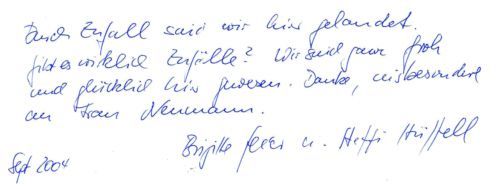 Durch Zufall sind wir hier gelandet.
Gibt es wirklich Zufälle? Wir sind ganz froh
und glücklich hier gewesen. Danke, insbesondere
an Frau Neumann.
Brigitte u. Steffi
Sept 2004